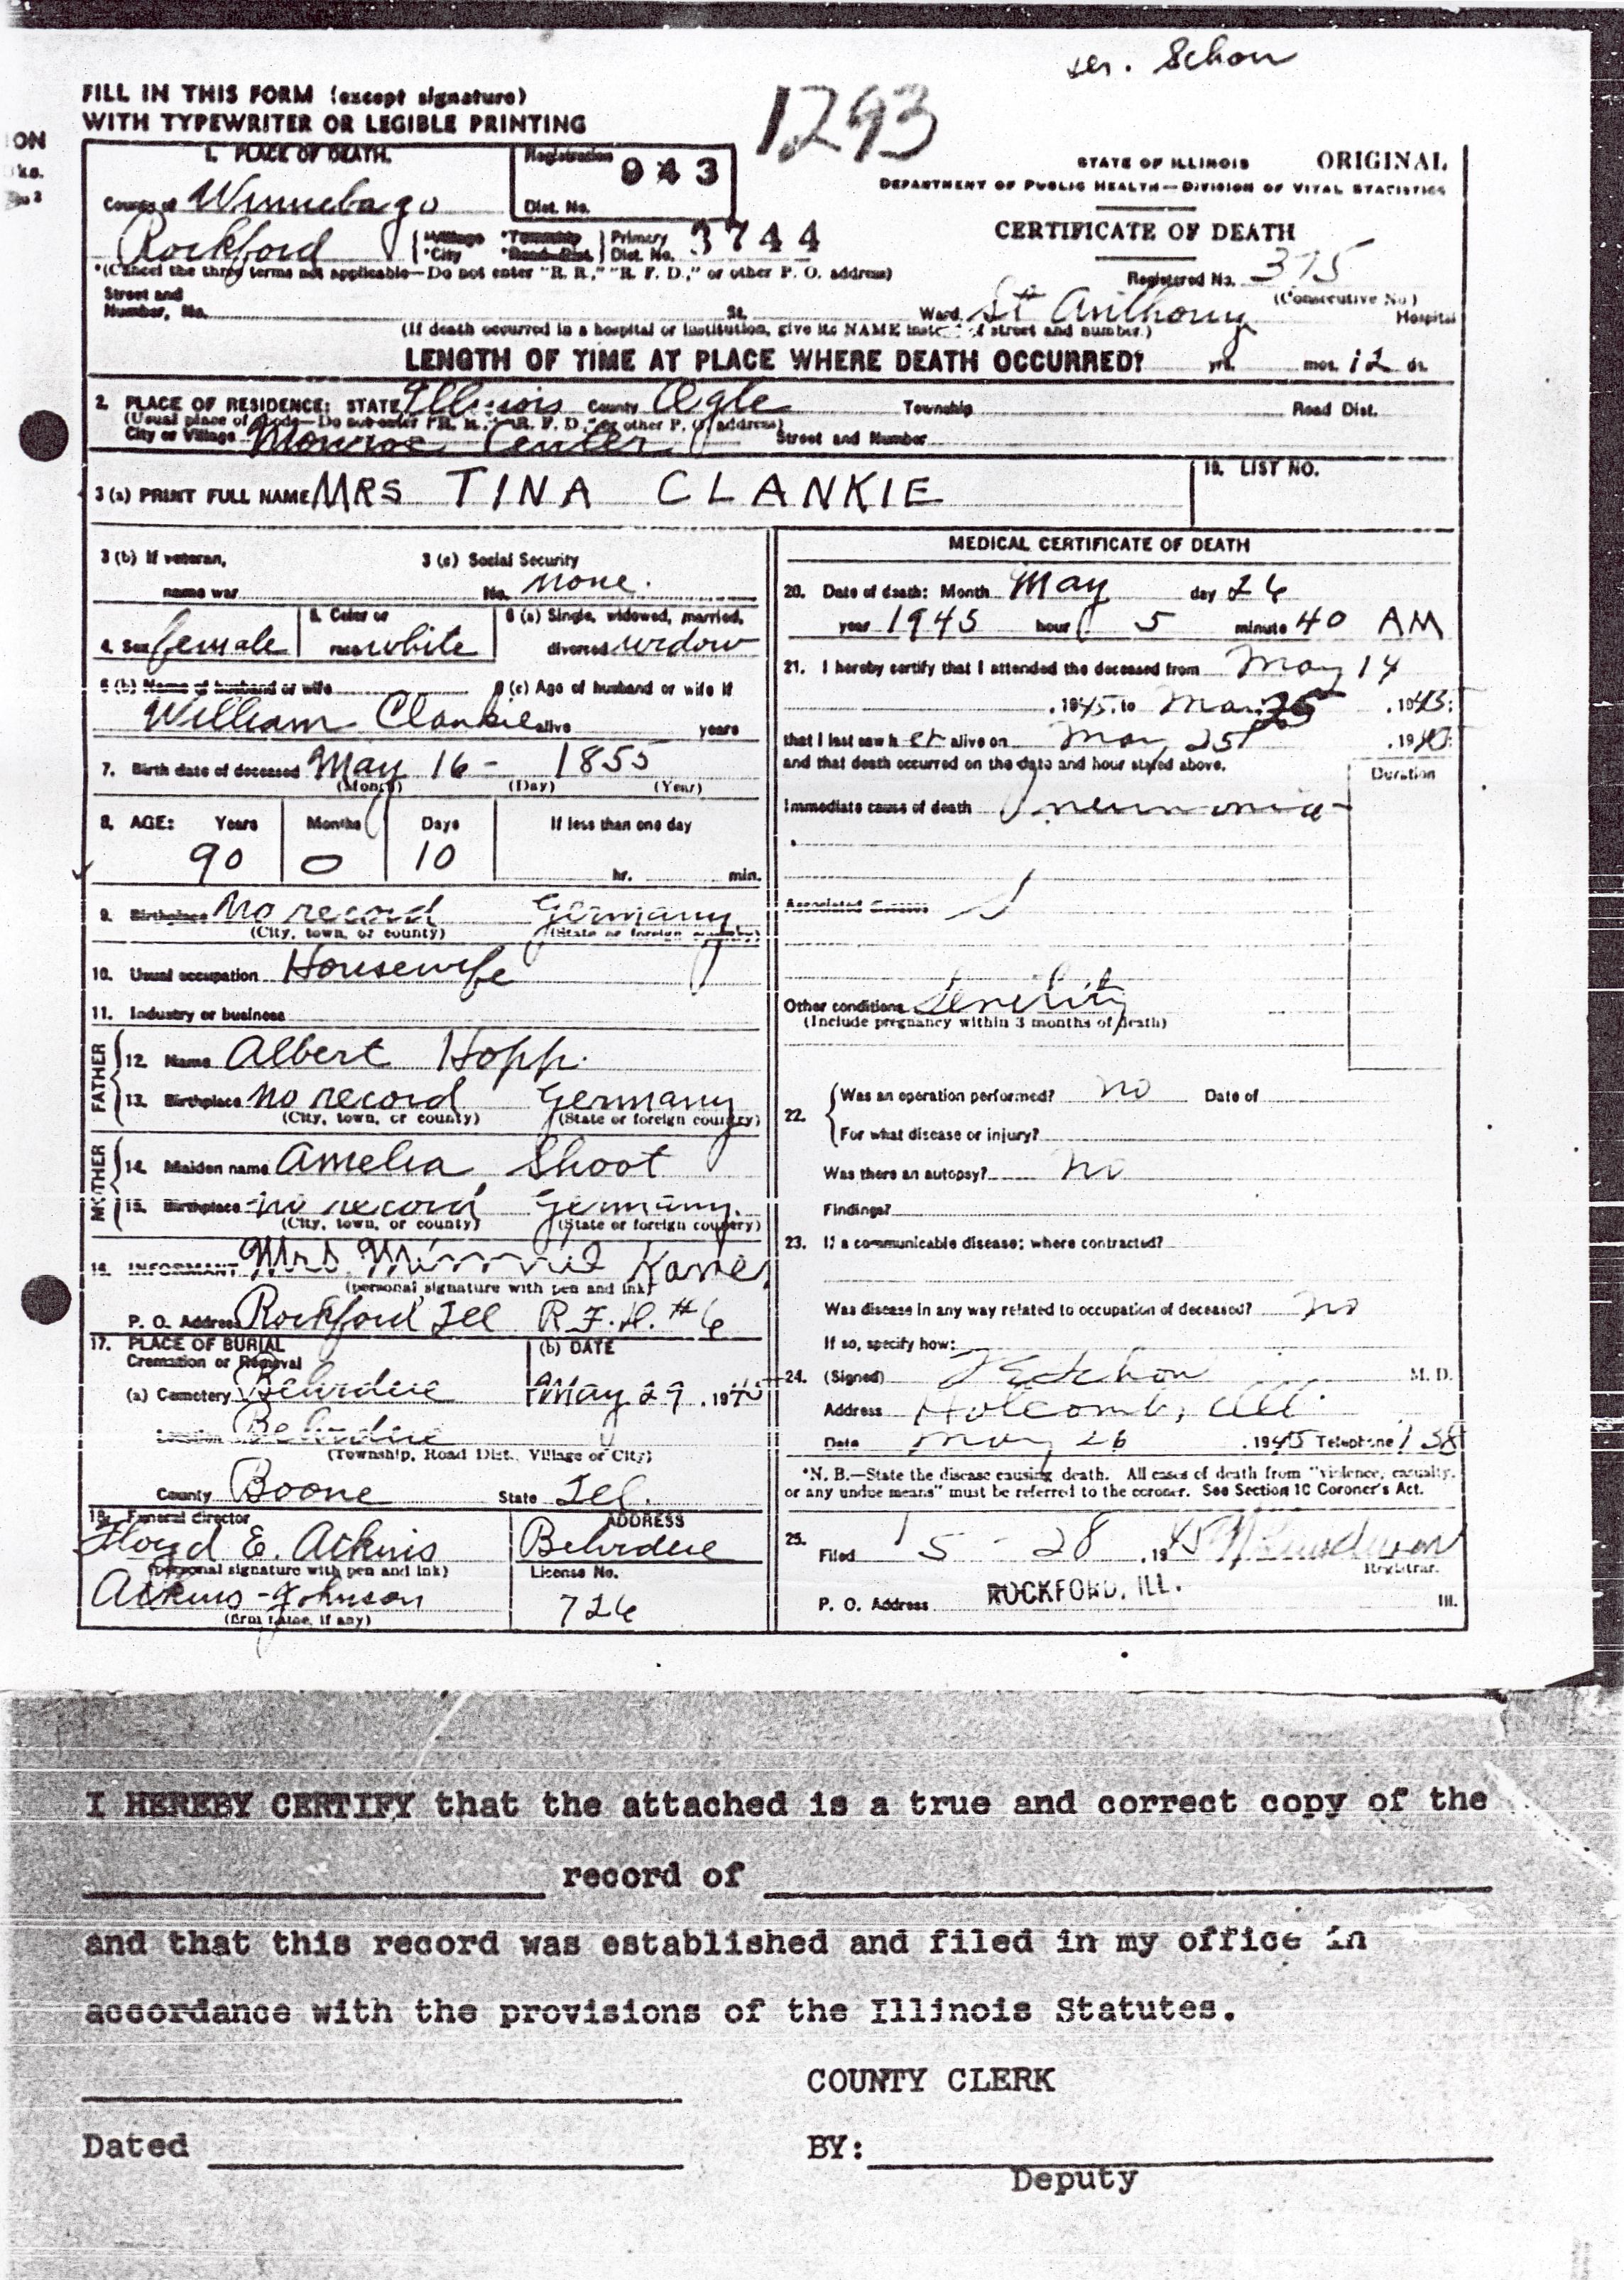 Schon
FILL IN THIS FORM (except signature)
WITH TYPEWRITER OR LEGIBLE PRINTING
1293
ON
1. PLACE OF DEATH.
Registration 943
Dist. No.
STATE OF ILLINOIS ORIGINAL
DEPARTMENT OF PUBLIC HEALTH—DIVISION OF VITAL STATISTICS
County of Winnebago
CERTIFICATE OF DEATH
Rockford *Village *Township *City *Road Dist. Primary Dist. No. 3744
*(Cancel the three terms not applicable—Do not enter "R. R.," "R. F. D.," or other P. O. address)
Registered No. 375
(Consecutive No.)
Street and Number, No. St. Ward, St Anthony Hospital
(If death occurred in a hospital or institution, give its NAME instead of street and number.)
LENGTH OF TIME AT PLACE WHERE DEATH OCCURRED? yrs. mos. 12 ds.
2. PLACE OF RESIDENCE: STATE Illinois County Ogle Township Road Dist.
(Usual place of abode—Do not enter "R. R.," "R. F. D." or other P. O. address)
City or Village Monroe Center Street and Number
3 (a) PRINT FULL NAME MRS TINA CLANKIE
19. LIST NO.
3 (b) If veteran, name war
3 (c) Social Security No. none.
4. Sex female
5. Color or race white
6 (a) Single, widowed, married, divorced widow
6 (b) Name of husband or wife William Clankie
6 (c) Age of husband or wife if alive years
7. Birth date of deceased May 16 - 1855
(Month) (Day) (Year)
8. AGE: Years Months Days If less than one day
90 0 10 hr. min.
9. Birthplace No record Germany
(City, town, or county) (State or foreign country)
10. Usual occupation Housewife
11. Industry or business
FATHER
12. Name Albert Hopp.
13. Birthplace no record Germany
(City, town, or county) (State or foreign country)
MOTHER
14. Maiden name Amelia Shoot
15. Birthplace no record Germany.
(City, town, or county) (State or foreign country)
16. INFORMANT Mrs Minnie Kane
(personal signature with pen and ink)
P. O. Address Rockford Ill R.F.D. #6
17. PLACE OF BURIAL
Cremation or Removal
(b) DATE
(a) Cemetery Belvidere May 29, 1945
Location Belvidere
(Township, Road Dist., Village or City)
County Boone State Ill.
18. Funeral director
ADDRESS
Floyd E. Atkins Belvidere
(personal signature with pen and ink)
License No.
Atkins-Johnson 726
(firm name, if any)
MEDICAL CERTIFICATE OF DEATH
20. Date of death: Month May day 26
year 1945 hour 5 minute 40 AM
21. I hereby certify that I attended the deceased from May 14
, 1945, to May 25, 1945;
that I last saw h er alive on May 25, 1945;
and that death occurred on the date and hour stated above.
Duration
Immediate cause of death Pneumonia
Associated diseases
Other conditions Senility
(Include pregnancy within 3 months of death)
22. Was an operation performed? no Date of
For what disease or injury?
Was there an autopsy? no
Findings?
23. If a communicable disease; where contracted?
Was disease in any way related to occupation of deceased? no
If so, specify how:
24. (Signed) Schon M. D.
Address Holcomb, Ill.
Date May 26, 1945 Telephone 138
*N. B.—State the disease causing death. All cases of death from "violence, casualty,
or any undue means" must be referred to the coroner. See Section 10 Coroner's Act.
25. Filed 5 - 28, 1945
Registrar.
P. O. Address ROCKFORD, ILL. Ill.
I HEREBY CERTIFY that the attached is a true and correct copy of the
record of
and that this record was established and filed in my office in
accordance with the provisions of the Illinois Statutes.
COUNTY CLERK
Dated BY:
Deputy